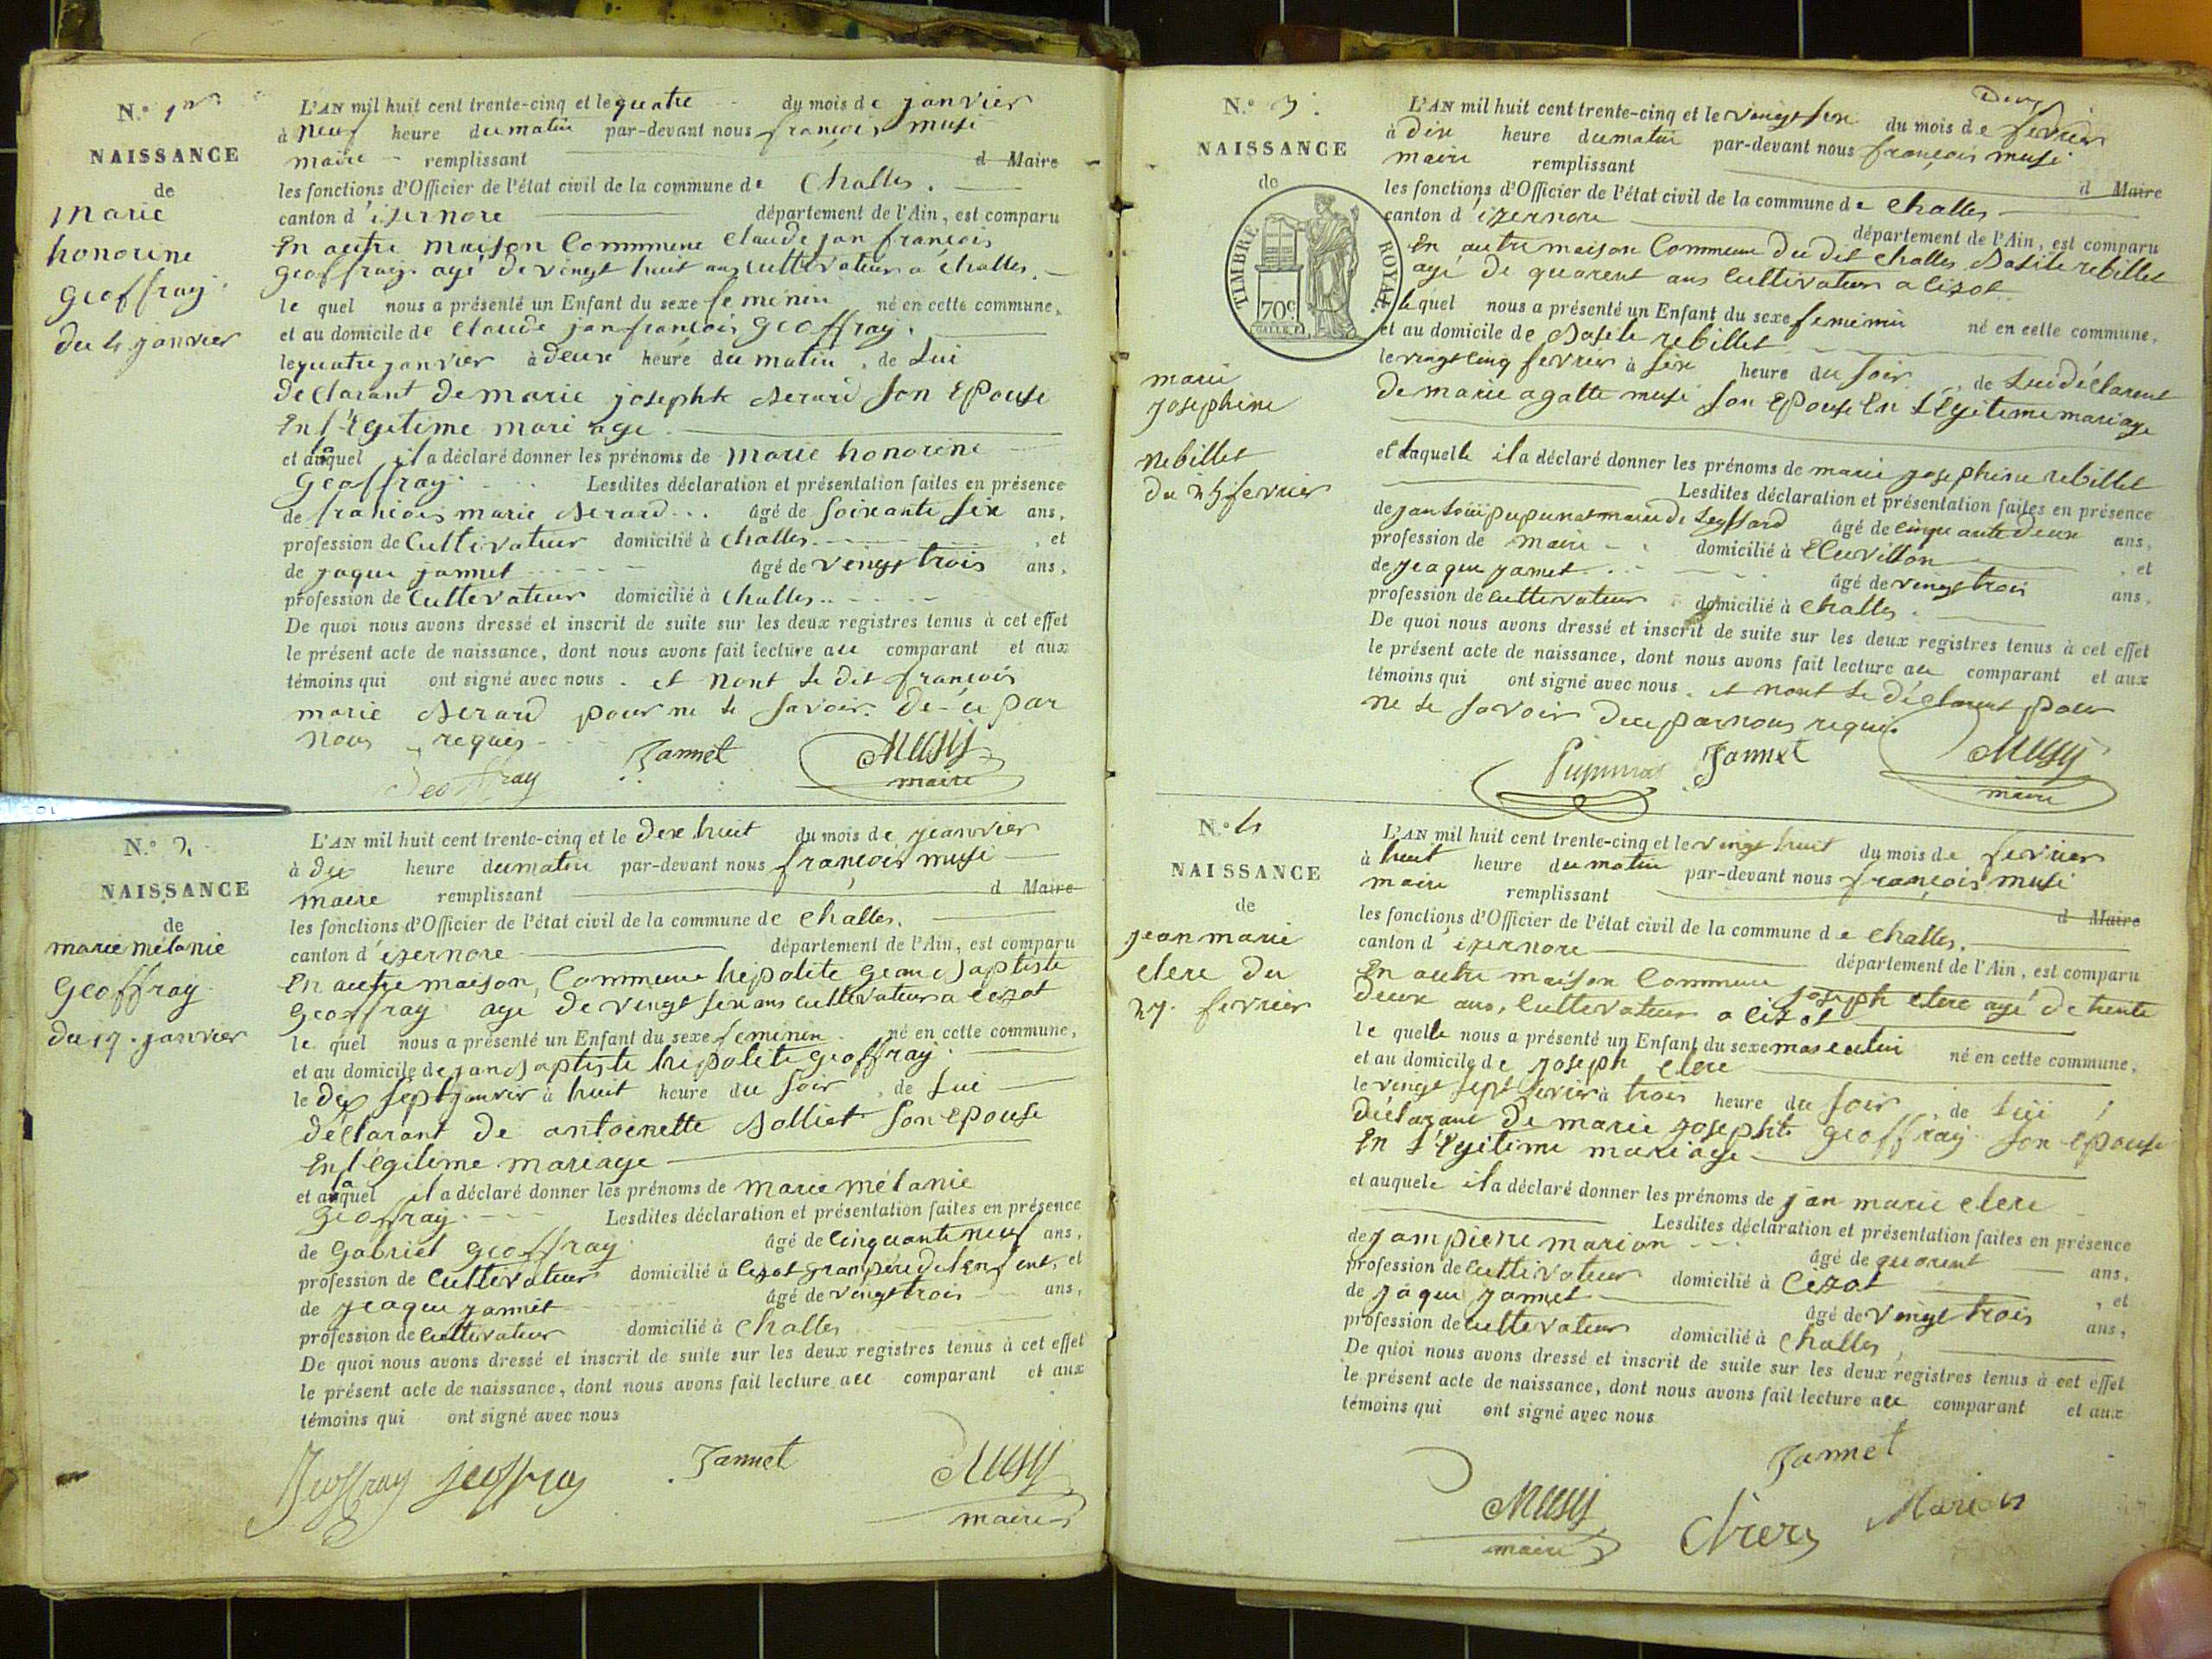 N.o 1er
NAISSANCE
de
marie
honorine
geoffray
du 4 janvier
L'AN mil huit cent trente-cinq et le quatre du mois de janvier
à neuf heure du matin par-devant nous françois musi
maire remplissant d Maire
les fonctions d'Officier de l'état civil de la commune de Challes.
canton d'izernore département de l'Ain, est comparu
En autre maison Commune Claude jan françois
geoffray agé de vingt huit ans Cultivateur a challes.
le quel nous a présenté un Enfant du sexe feminin né en cette commune,
et au domicile de Claude jan françois geoffray.
le quatre janvier à deux heure du matin, de Lui
declarant de marie josephte Berard son Epouse
En légitime mariage
et alaquel il a déclaré donner les prénoms de marie honorine
geoffray. Lesdites déclaration et présentation faites en présence
de francois marie Berard âgé de soixante six ans,
profession de Cultivateur domicilié à Challes. , et
de jaque jannet âgé de vingt trois ans,
profession de Cultivateur domicilié à Challes
De quoi nous avons dressé et inscrit de suite sur les deux registres tenus à cet effet
le présent acte de naissance, dont nous avons fait lecture au comparant et aux
témoins qui ont signé avec nous. et nont le dit françois
marie Berard pour ne le savoir. de ce par
nous reques
Geoffray Jannet Musy
maire
N.o 2
NAISSANCE
de
marie mélanie
geoffray
du 17. janvier
L'AN mil huit cent trente-cinq et le dixe huit du mois de jeanvier
à dix heure du matin par-devant nous françois musi
maire remplissant d Maire
les fonctions d'Officier de l'état civil de la commune de Challes.
canton d'izernore département de l'Ain, est comparu
En autre maison, Commune hipolite jean Baptiste
geoffray agé de vingt six ans cultivateur a cizot
le quel nous a présenté un Enfant du sexe feminin né en cette commune,
et au domicile de jan Baptiste hipolite geoffray.
le dix sept janvier à huit heure du soir, de Lui
déclarant de antoinette Balliat son epouse
En légitime mariage
et alaquel il a déclaré donner les prénoms de marie mélanie
geoffray. Lesdites déclaration et présentation faites en présence
de Gabriel geoffray âgé de Cinquante neuf ans,
profession de Cultivateur domicilié à Cizot granpere de lenfent, et
de jeaque jannet âgé de vingt trois ans,
profession de Cultivateur domicilié à Challes
De quoi nous avons dressé et inscrit de suite sur les deux registres tenus à cet effet
le présent acte de naissance, dont nous avons fait lecture au comparant et aux
témoins qui ont signé avec nous
Jeoffray jeoffray Jannet Musy
maire
Deux
N.o 3.
NAISSANCE
de
TIMBRE ROYAL
70c
marie
josephine
rebillet
du 25 fevrier
L'AN mil huit cent trente-cinq et le vingt six du mois de fevrier
à dix heure du matin par-devant nous françois musi
maire remplissant d Maire
les fonctions d'Officier de l'état civil de la commune de Challes
canton d'izernore département de l'Ain, est comparu
En autre maison Commune du dit Challes Basile rebillet
agé de quarent ans Cultivateur a cizot
le quel nous a présenté un Enfant du sexe feminin né en cette commune,
et au domicile de Basile rebillet
le vingt cinq fevrier à six heure du soir, de Lui déclarent
de marie agatte musi son Epouse En Légitime mariage
et laquelle il a déclaré donner les prénoms de marie josephine rebillet
Lesdites déclaration et présentation faites en présence
de jan Loüi pupunat maire de Leyssard âgé de cinquante deux ans,
profession de maire domicilié à , et
de jeaque jannet âgé de vingt trois ans,
profession de Cultivateur domicilié à Challes.
De quoi nous avons dressé et inscrit de suite sur les deux registres tenus à cet effet
le présent acte de naissance, dont nous avons fait lecture au comparant et aux
témoins qui ont signé avec nous. et nont le déclarent pour
ne le savoir dece par nous requi.
Pupunat Jannet Musy
maire
N.o 4
NAISSANCE
de
jean marie
clere du
27. fevrier
L'AN mil huit cent trente-cinq et le vingt huit du mois de fevrier
à huit heure du matin par-devant nous françois musi
maire remplissant d Maire
les fonctions d'Officier de l'état civil de la commune de Challes.
canton d'izernore département de l'Ain, est comparu
En autre maison Commune joseph clere agé de trente
deux ans, Cultivateur a cizot
le quelle nous a présenté un Enfant du sexe masculin né en cette commune,
et au domicile de joseph clere
le vingt sept fevrier à trois heure du soir, de Lüi
déclarant de marie josephte geoffray son epouse
En Légitime mariage
et auquele il a déclaré donner les prénoms de jan marie clere
Lesdites déclaration et présentation faites en présence
de jampierre marion âgé de quarent ans,
profession de Cultivateur domicilié à Cizot , et
de jaque jannet âgé de vingt trois ans,
profession de Cultivateur domicilié à Challes,
De quoi nous avons dressé et inscrit de suite sur les deux registres tenus à cet effet
le présent acte de naissance, dont nous avons fait lecture au comparant et aux
témoins qui ont signé avec nous
Jannet
Musy Marion
maire